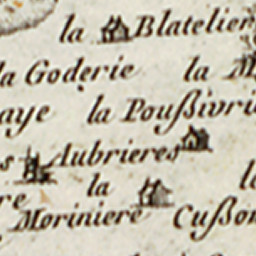 la Blatelier
la Goderie la M
aye la Poußivri
s Aubrieres
re la l
Moriniere Cußon